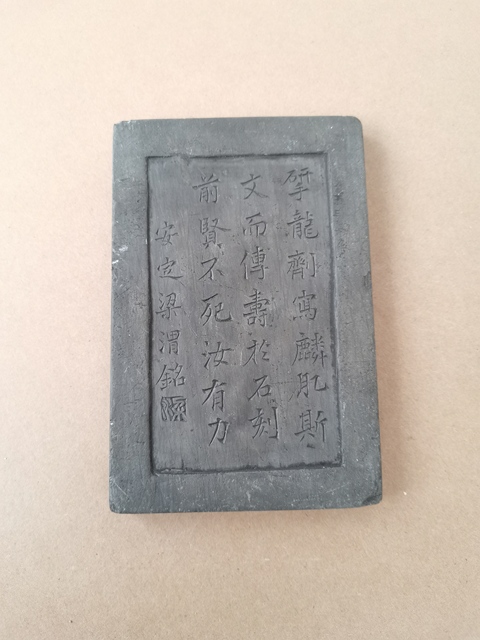 龍劑寫麟肌斯
文而傳壽於石刻
前賢不死汝有力
安定梁渭銘